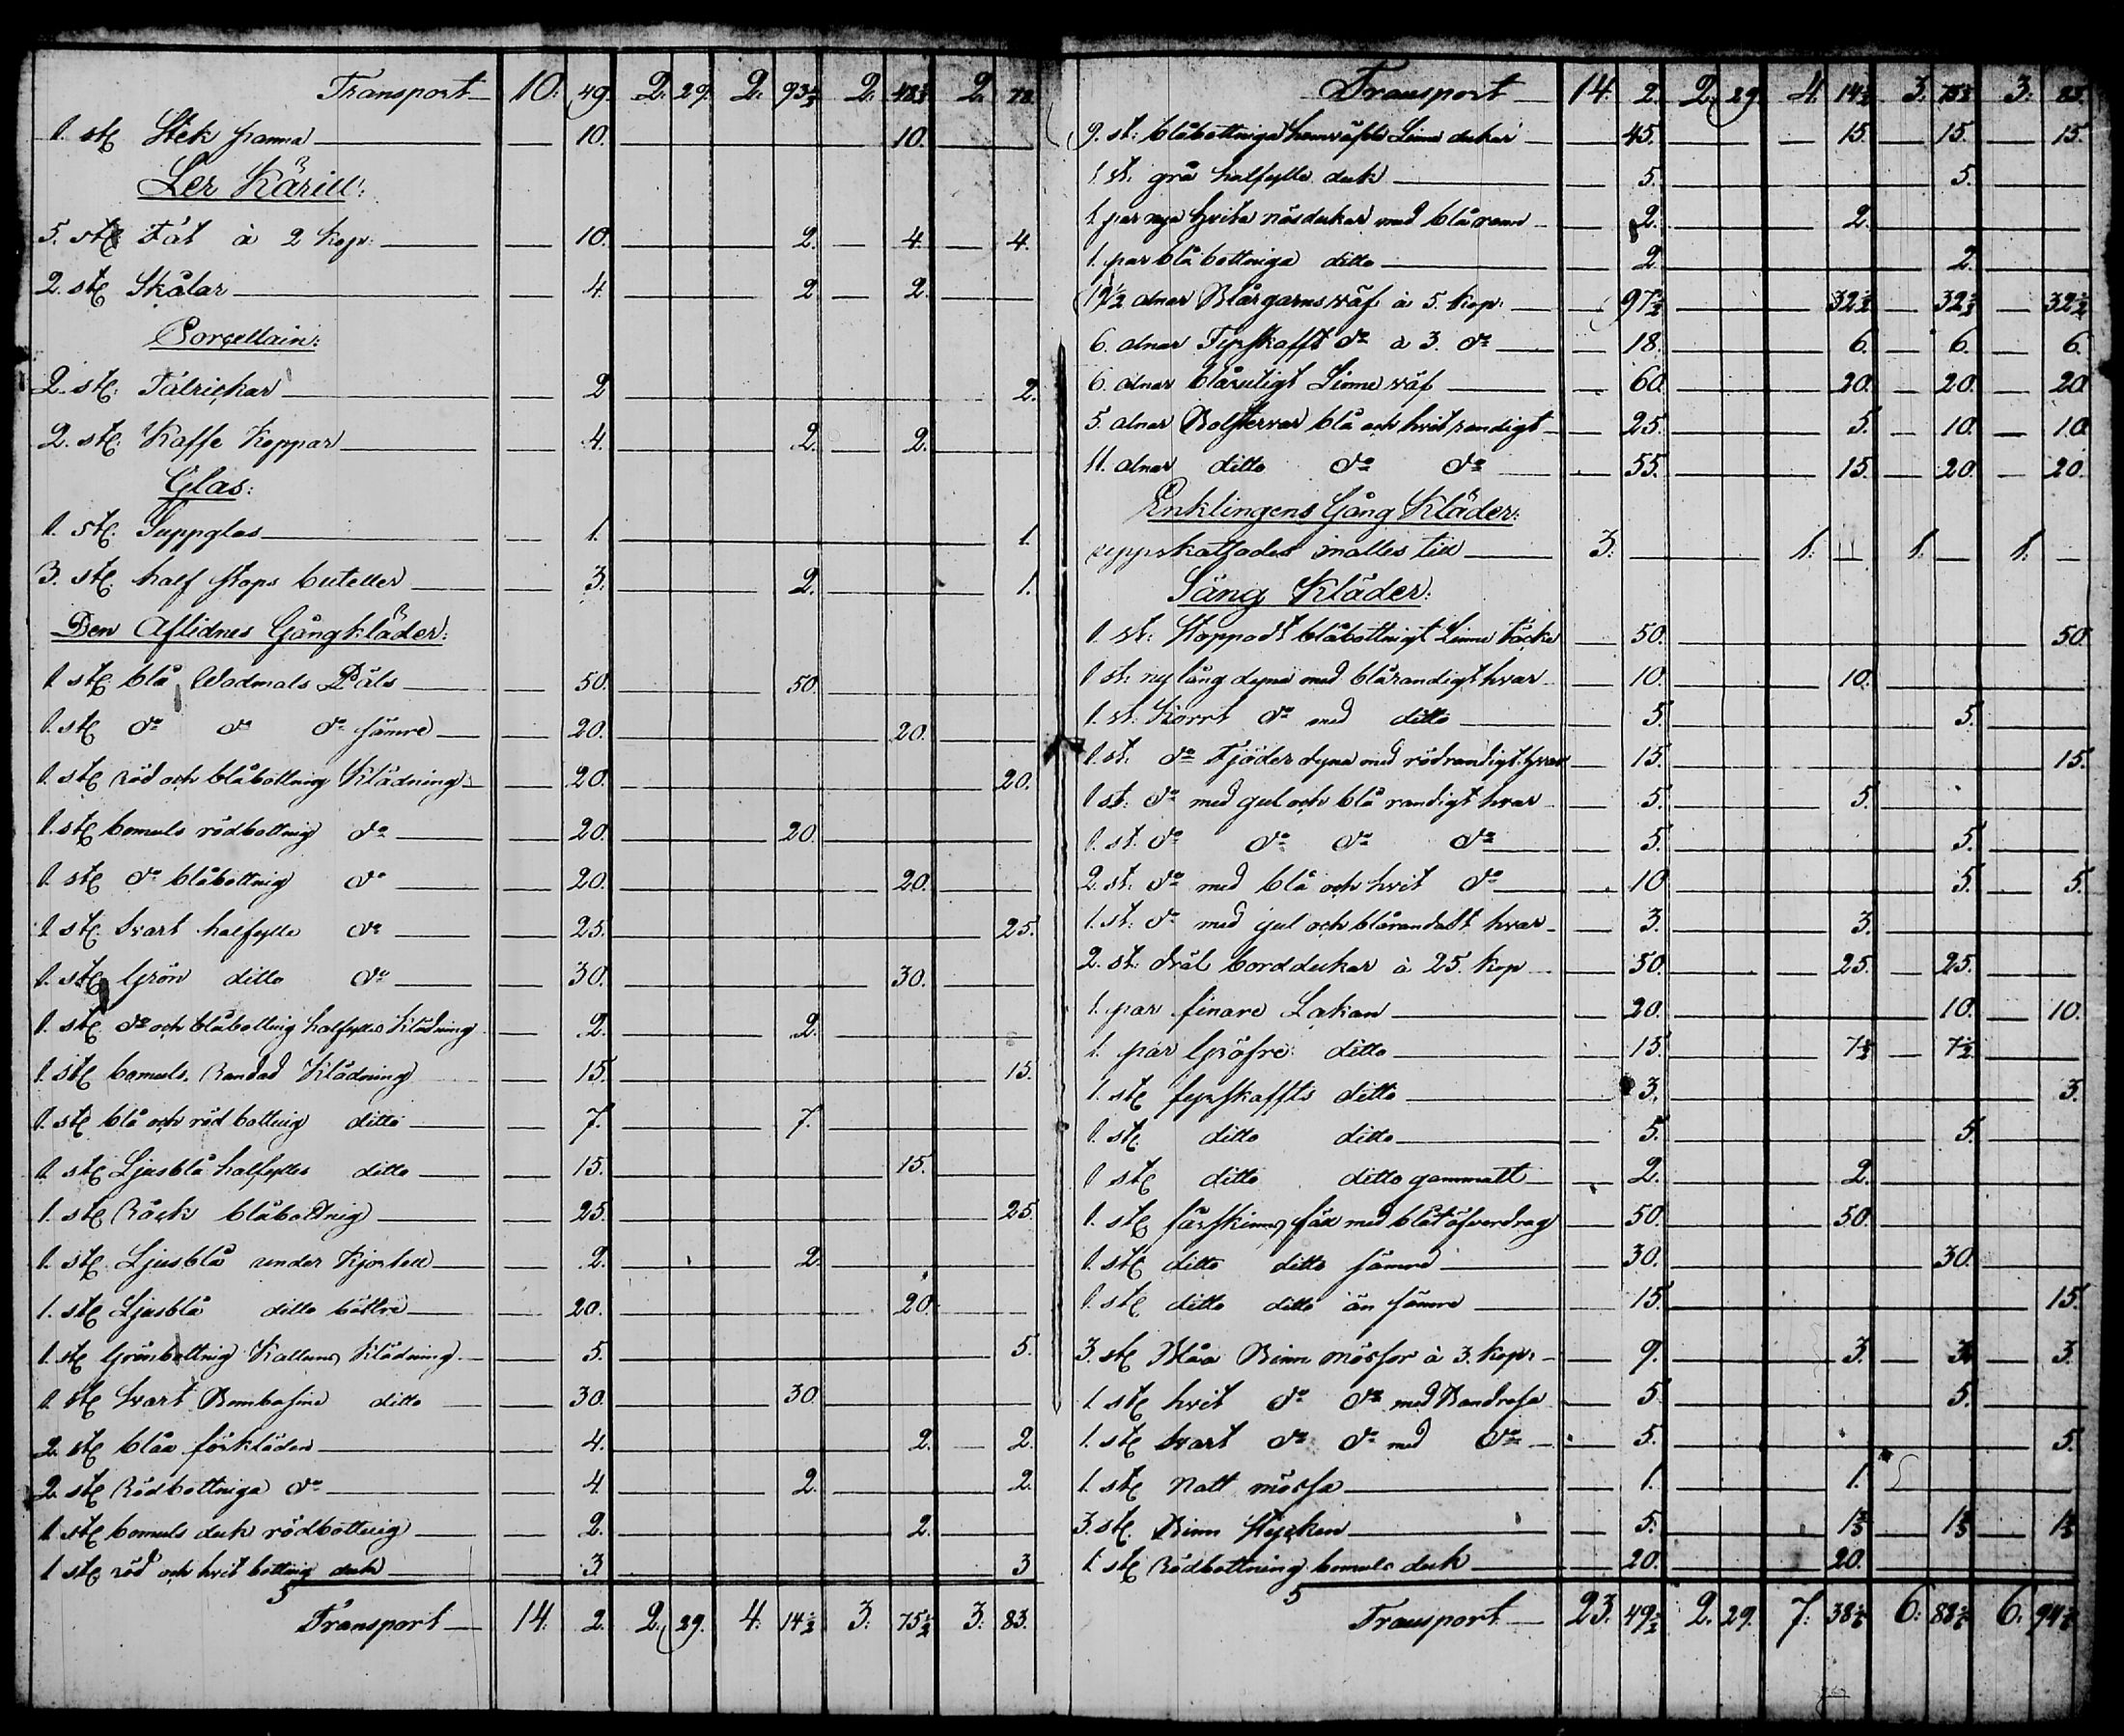 Transport 10. 49. 2. 29. 2. 93½ 2. 48½ 2. 78.
1. st. Stek panna 10. 10.
Ler Käril:
5. st. Fat à 2 kop: 10. 2. 4. 4.
2. st. Skålar 4. 2. 2.
Porcellain:
2. st. Tålrickar 2 2.
2. st. Kaffe Koppar 4. 2. 2.
Glas:
1. st. Suppglas 1. 1.
3. st. half stops buteller 3. 2. 1.
Den Aflidnes Gångkläder:
1 st. blå Wadmals Päls 50. 50
1. st. do do do sämre 20. 20.
1. st. röd och blåbottnig Klädning 20. 20.
1. st. bomuls rödbottnig do 20. 20.
1. st. do blåbottnig do 20. 20.
1 st. svart halfylle do 25. 25.
1. st. Grön ditto do 30. 30.
1. st. do och blåbottnig halfylles Klädning 2. 2.
1. st. bomuls. Randad Klädning 15. 15.
1. st. blå och röd bottnig ditto 7. 7.
1 st. Ljusblå halfylles ditto 15. 15.
1. st. Råck blåbottnig 25. 25.
1. st. Ljusblå under Kjortell 2. 2.
1. st. Ljusblå ditto bättre 20. 20
1. st. Grönbottnig Kattuns Klädning 5. 5.
1 st. Svart Bombasins ditto 30. 30
2. st. blåa förkläden 4. 2. 2.
2. st. Rödbottniga do 4 2. 2.
1 st. bomuls duk rödbottnig 2. 2.
1 st. röd och hvit bottnig duk 3 3
5
Transport 14. 2. 2. 29. 4. 14½ 3. 75½ 3. 83.
Transport 14. 2. 2. 29 4. 14½ 3. 75½ 3. 83.
9. st: blåbottniga hemväfda Linne dukar 45. 15. 15. 15.
1 st. grå halfylle duk 5. 5.
1. par nya hvita näsdukar med blå rand 2. 2.
1. par blåbottniga ditto 2 2
19½ alnar Blårgarns väf à 5. kop: 97½ 32½ 32½ 32½
6. alnar Fyrskafft do à 3. do 18. 6. 6. 6.
6. alnar blårutigt Linne väf 60 20. 20. 20
5. alnar Bolstervar blå och hvit randigt 25. 5. 10. 10
11. alnar ditto do do 55. 15. 20. 20.
Enklingens Gång Kläder:
uppskattades inalles till 3. 1. 1. 1.
Säng Kläder:
1. st. Stoppadt blåbottnigt Linne täcke 50. 50
1 st. ny lång dyna med blårandigt hvar 10. 10.
1. st. Korrt do med ditto 5. 5.
1 st. do Fjäder dyna med rödrandigt hvar 15. 15.
1 st: do med gul och blå randigt hvar 5. 5.
1. st. do do do do 5. 5.
2. st. do med blå och hvit do 10 5. 5.
1. st: do med gul och blårandadt hvar 3. 3.
2. st. dräl borddukar à 25. kop 50. 25. 25.
1. par finare Lakan 20. 10. 10.
1. par Gröfre ditto 15. 7½ 7½
1. st. fyrskaffts ditto 3. 3.
1. st. ditto ditto 5. 5.
1 st. ditto ditto gammalt 2. 2.
1. st. fårskinns fäll med blåt öfverdrag 50. 50.
1. st. ditto ditto sämre 30. 30.
1. st. ditto ditto än sämre 15. 15.
3. st. Blåa Binn mössor à 3. kop: 9. 3. 3. 3.
1. st. hvit do do med Bandrosa 5 5.
1. st. Svart do do med do 5. 5.
1. st. Natt mössa 1. 1.
3. st. Binn Stycken 5. 1⅔ 1⅔ 1⅔
1. st. Rödbottning bomuls duk 20. 20.
5
Transport 23. 49½ 2. 29. 7. 38⅙ 6. 88⅙ 6. 94⅙